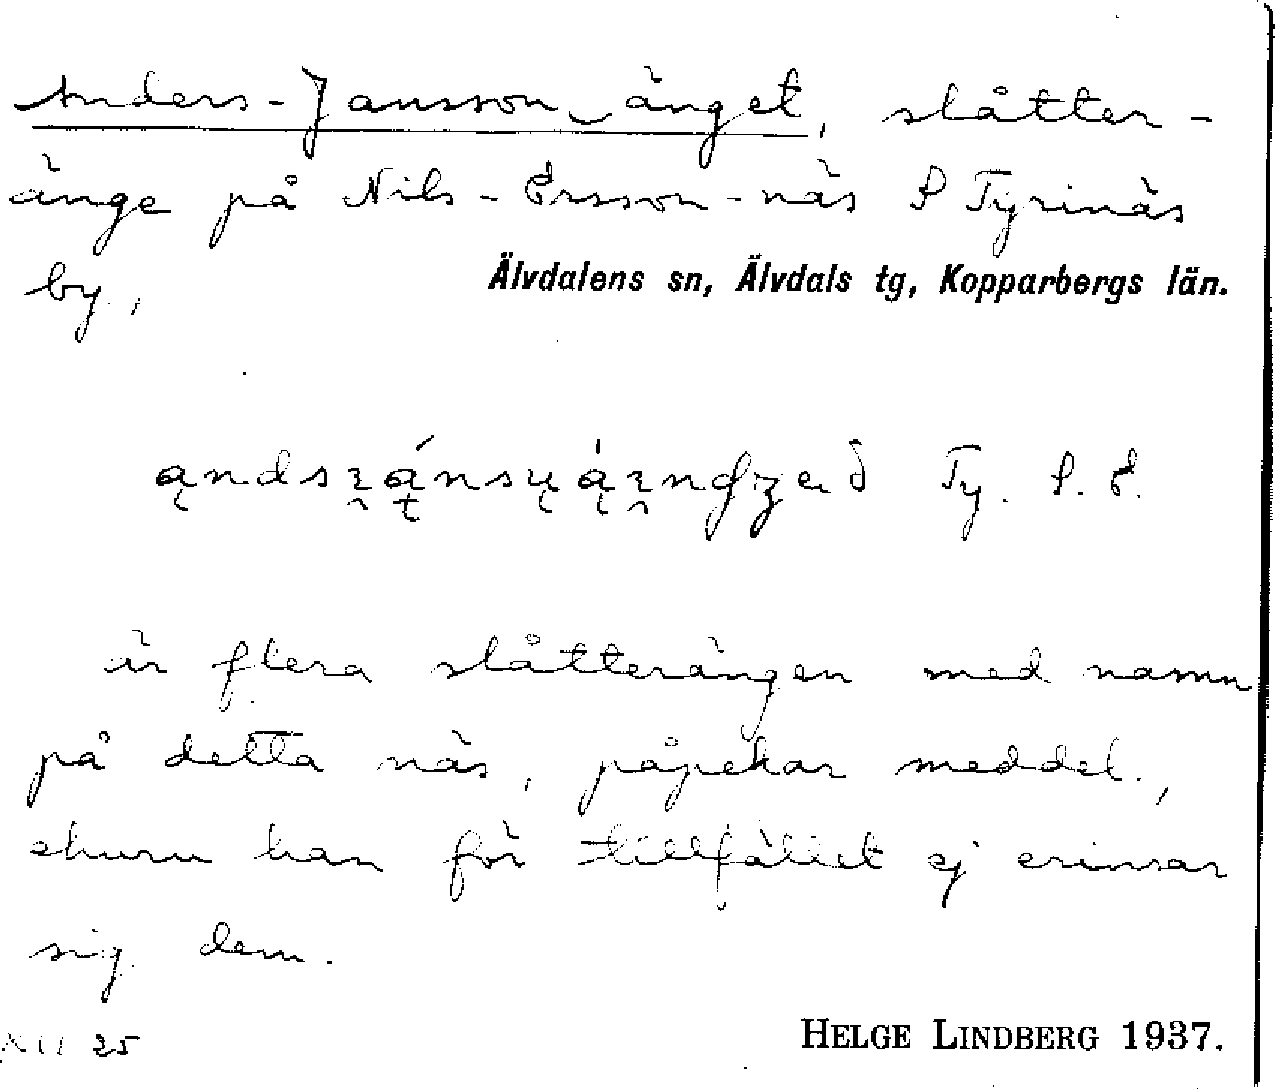 Anders-Jansson‿änget, slåtter-
änge på Nils-Ersson-näs S Tyrinäs
by,
Älvdalens sn, Älvdals tg, Kopparbergs län.
Ty. S. E.
är flera slåtterängen med namn
på detta näs, påpekar meddel.,
ehuru han för tillfället ej erinrar
sig dem.
XII 25
HELGE LINDBERG 1937.